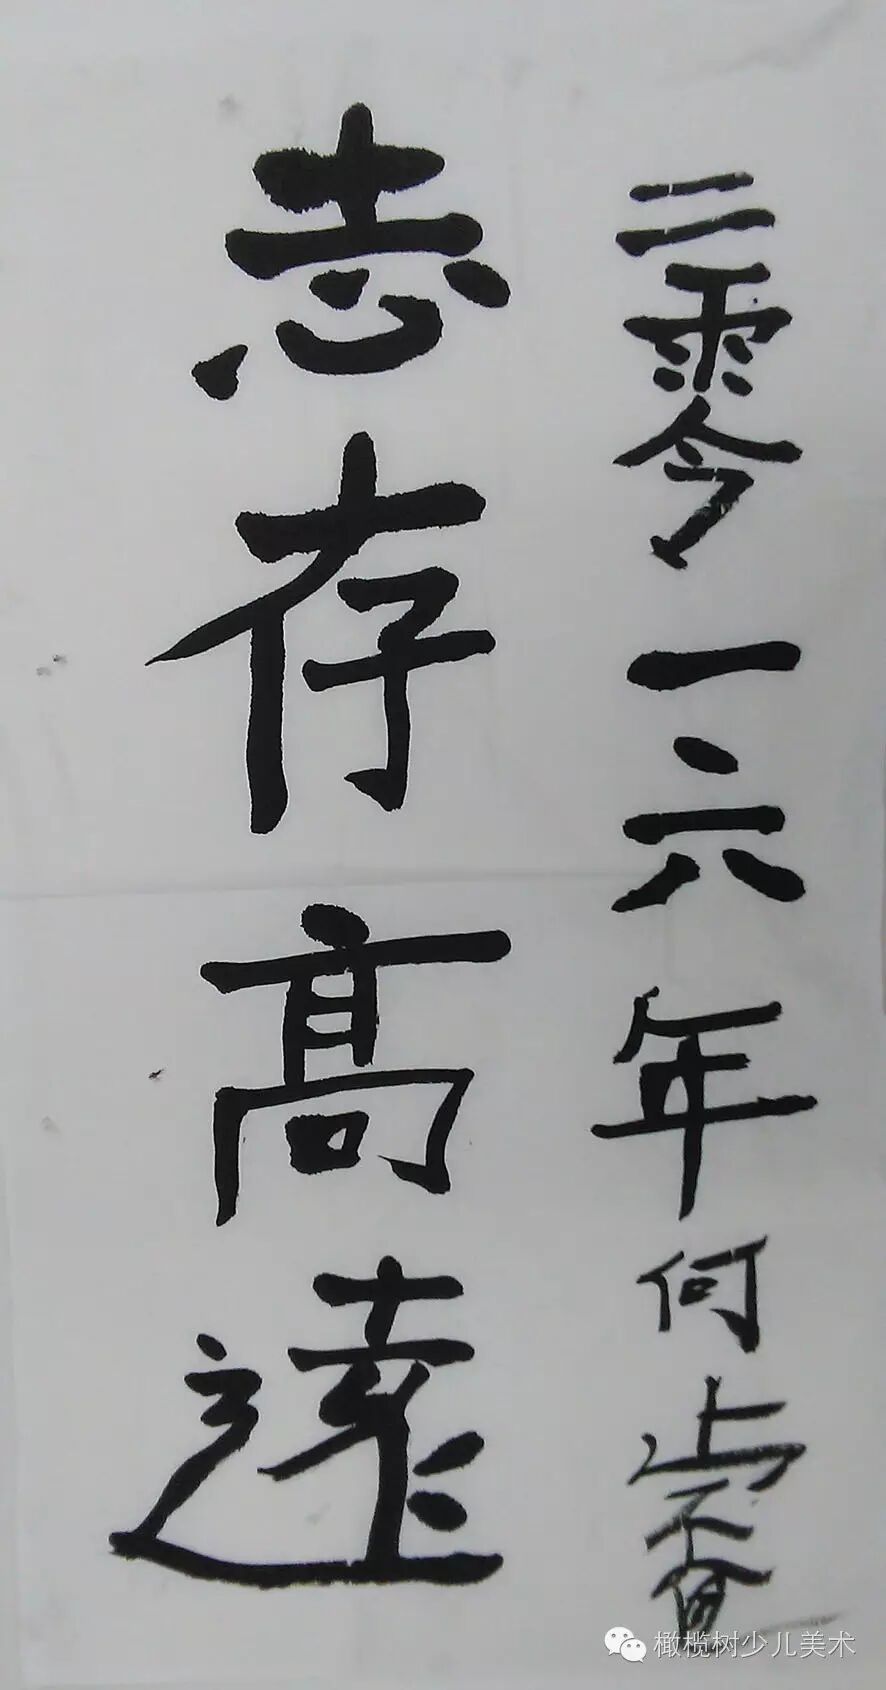 二零一六年何
志存高遠
橄榄树少儿美术